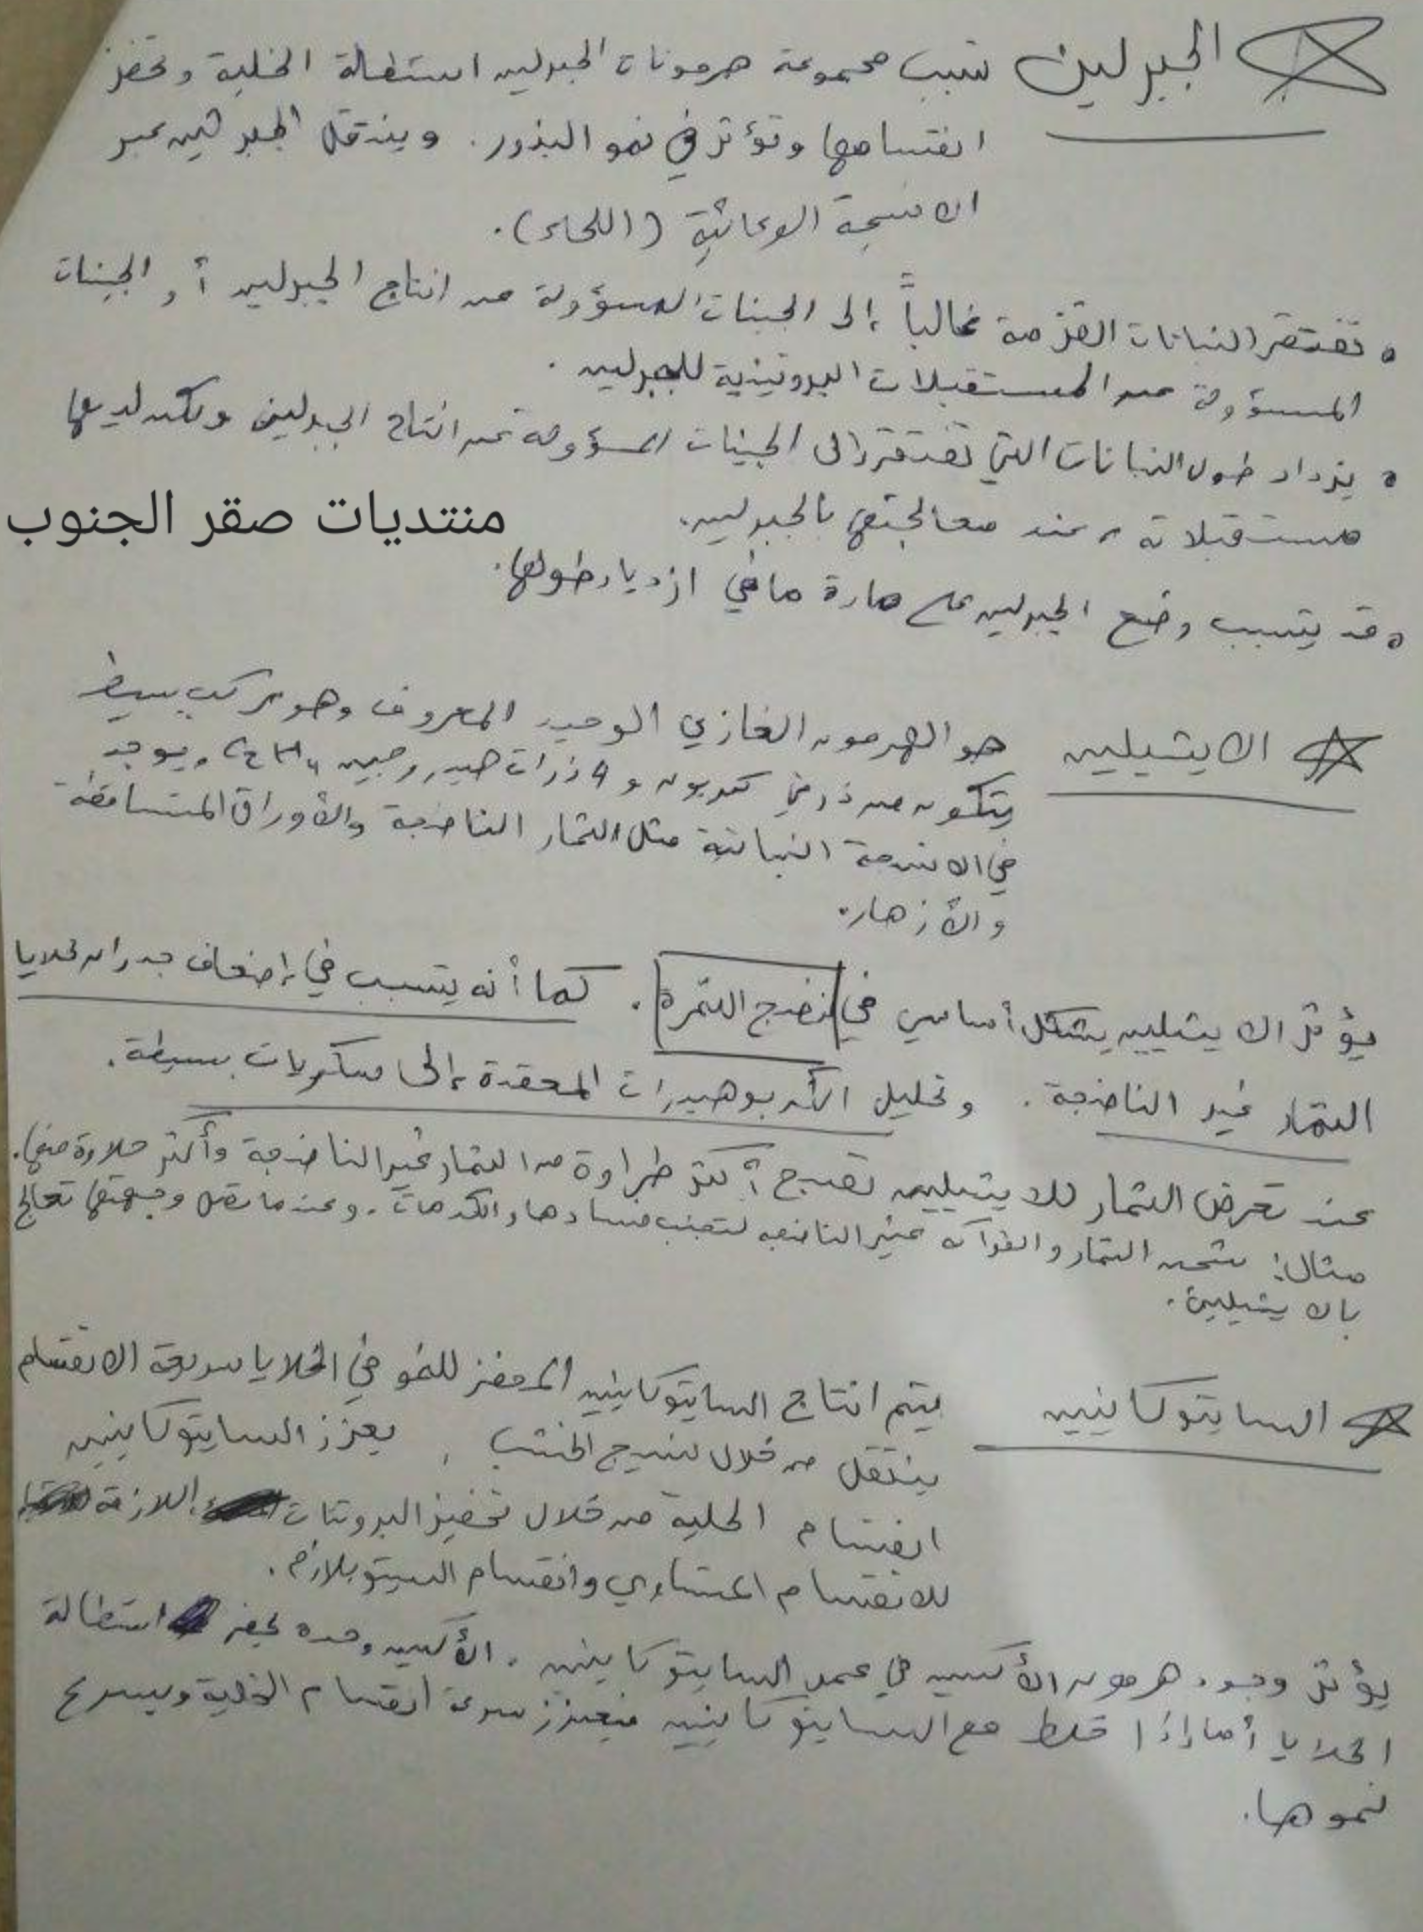 الجبرلين تسبب مجموعة هرمونات الجبرلين استطالة الخلية وتحفز
انقسامها وتؤثر في نمو البذور. وينتقل الجبرلين عبر
الانسجة الوعائية (اللحاء).
• تفتقر النباتات القزمة غالباً إلى الجينات المسؤولة عن انتاج الجبرلين أو الجينات
المسؤولة عن المستقبلات البروتينية للجبرلين.
• يزداد طول النباتات التي تفتقر إلى الجينات المسؤولة عن انتاج الجبرلين ولكن لديها
مستقبلاته، عند معالجتها بالجبرلين.
منتديات صقر الجنوب
• قد يتسبب وضع الجبرلين على مادة ما في ازدياد طولها.
الايثيلين هو الهرمون الغازي الوحيد المعروف وهو مركب بسيط
يتكون من ذرتي كربون و 4 ذرات هيدروجين C₂H₄. ويوجد
في الانسجة النباتية مثل الثمار الناضجة والأوراق المتساقطة
والأزهار.
يؤثر الايثيلين بشكل أساسي في نضج الثمرة. كما أنه يتسبب في إضعاف جدران خلايا
الثمار غير الناضجة. وتحليل الكربوهيدرات المعقدة إلى سكريات بسيطة.
عند تعرض الثمار للايثيلين تصبح أكثر طراوة من الثمار غير الناضجة وأكثر حلاوة منها.
مثال: تشحن الثمار والفواكه غير الناضجه لتجنب فسادها والكدمات. وعندما تصل وجهتها تعالج
بالايثيلين.
السايتوكاينين يتم انتاج السايتوكاينين المحفز للنمو في الخلايا سريعة الانقسام
ينتقل من خلال نسيج الخشب، يعزز السايتوكاينين
انقسام الخلية من خلال تحفيز البروتينات اللازمة
للانقسام المتساوي وانقسام السيتوبلازم.
يؤثر وجود هرمون الأكسين في عمل السايتوكاينين. الأكسين وحده يحفز استطالة
الخلايا أما إذا خلط مع السايتوكاينين فيعزز سرعة انقسام الخلية ويسرع
نموها.